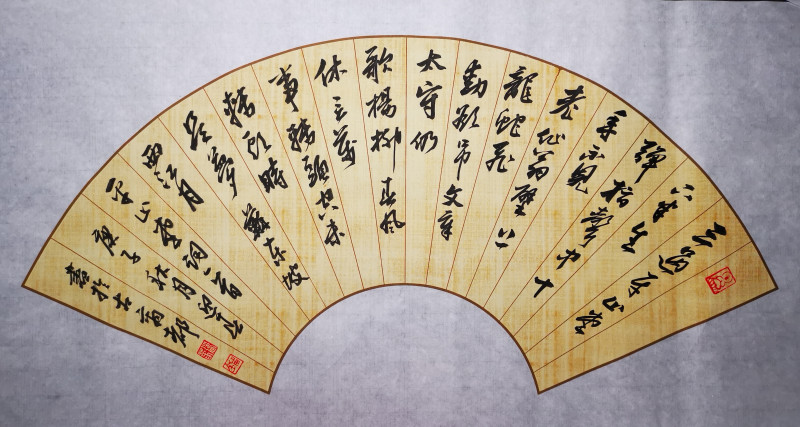 三過平山堂
下半生
彈指聲中十
年不見
老仙翁壁上
龍蛇飛
動欲吊文章
太守仍
歌楊柳春風
休言萬
事轉頭空未
轉頭時
皆夢蘇東坡
西江月
平山堂詞一首
庚子秋月
書於古商都